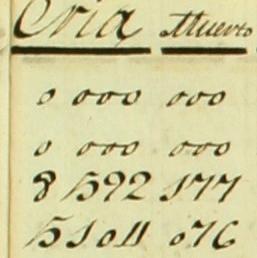 Cria Muerto
0 000 000
0 000 000
8 1592 177
151011 076